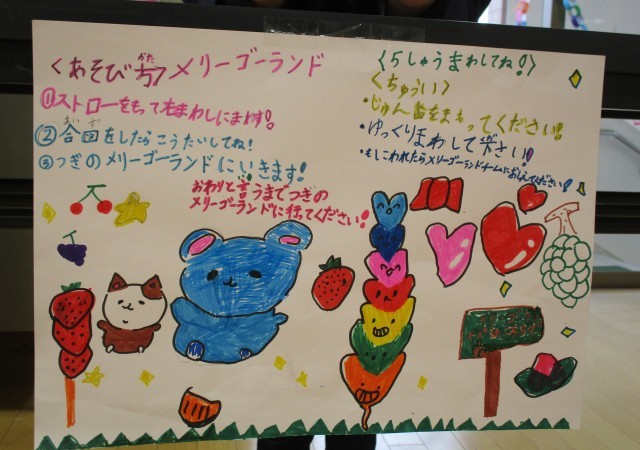 <あそび方>メリーゴーランド
かた
①ストローをもってまわしにます。
あいず
②合図をしたらこうたいしてね!
③つぎのメリーゴーランドにいきます!
おわりと言うまでつぎの
メリーゴーランドに行ってください!
<5しゅうまわしてね!>
<ちゅうい>
・じゅん番をまもってください!
・ゆっくりまわして下さい!
・もしこわれたらメリーゴーランドチームにおしえてください!